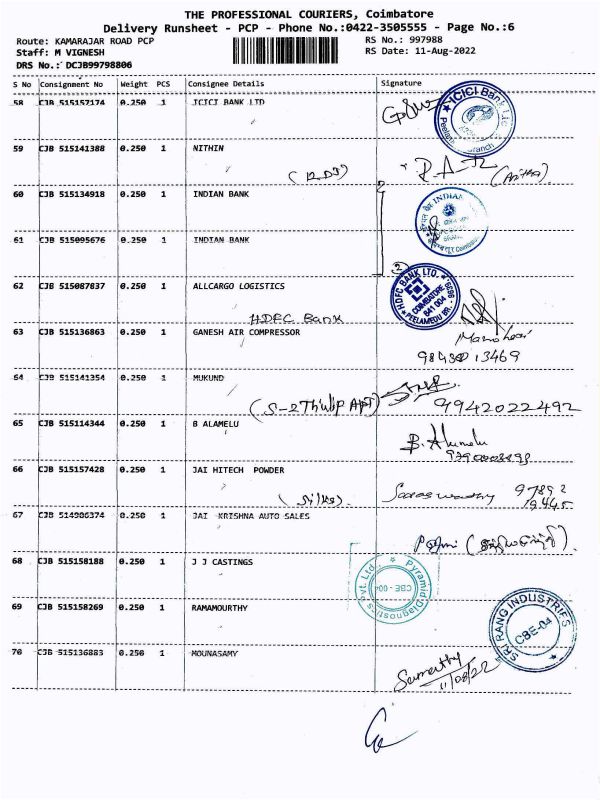 THE PROFESSIONAL COURIERS, Coimbatore
Delivery Runsheet - PCP - Phone No.:0422-3505555 - Page No.:6
Route: KAMARAJAR ROAD PCP
RS No.: 997988
Staff: M VIGNESH
RS Date: 11-Aug-2022
DRS No.: DCJB99798806
S No Consignment No Weight PCS Consignee Details Signature
58 CJB 515157174 0.250 1 ICICI BANK LTD
ICICI Bank Ltd
Branch
59 CJB 515141388 0.250 1 NITHIN
(Anitha)
60 CJB 515134918 0.250 1 INDIAN BANK
61 CJB 515095676 0.250 1 INDIAN BANK
62 CJB 515087837 0.250 1 ALLCARGO LOGISTICS
HDFC BANK LTD.
COIMBATORE
641 004
PEELAMEDU BR.
HDFC Bank
63 CJB 515136863 0.250 1 GANESH AIR COMPRESSOR
64 CJB 515141354 0.250 1 MUKUND
(S-2 Thulip Apt)
9942022492
65 CJB 515114344 0.250 1 B ALAMELU
B. Alumelu
66 CJB 515157428 0.250 1 JAI HITECH POWDER
(Silks)
97892
19445
67 CJB 514986374 0.250 1 JAI KRISHNA AUTO SALES
68 CJB 515158188 0.250 1 J J CASTINGS
Pyramid Diagnostics Pvt. Ltd.
CBE - 004
69 CJB 515158269 0.250 1 RAMAMOURTHY
SRI RANG INDUSTRIES
CBE-04
70 CJB 515136883 0.250 1 MOUNASAMY
Sumathy
11/08/22